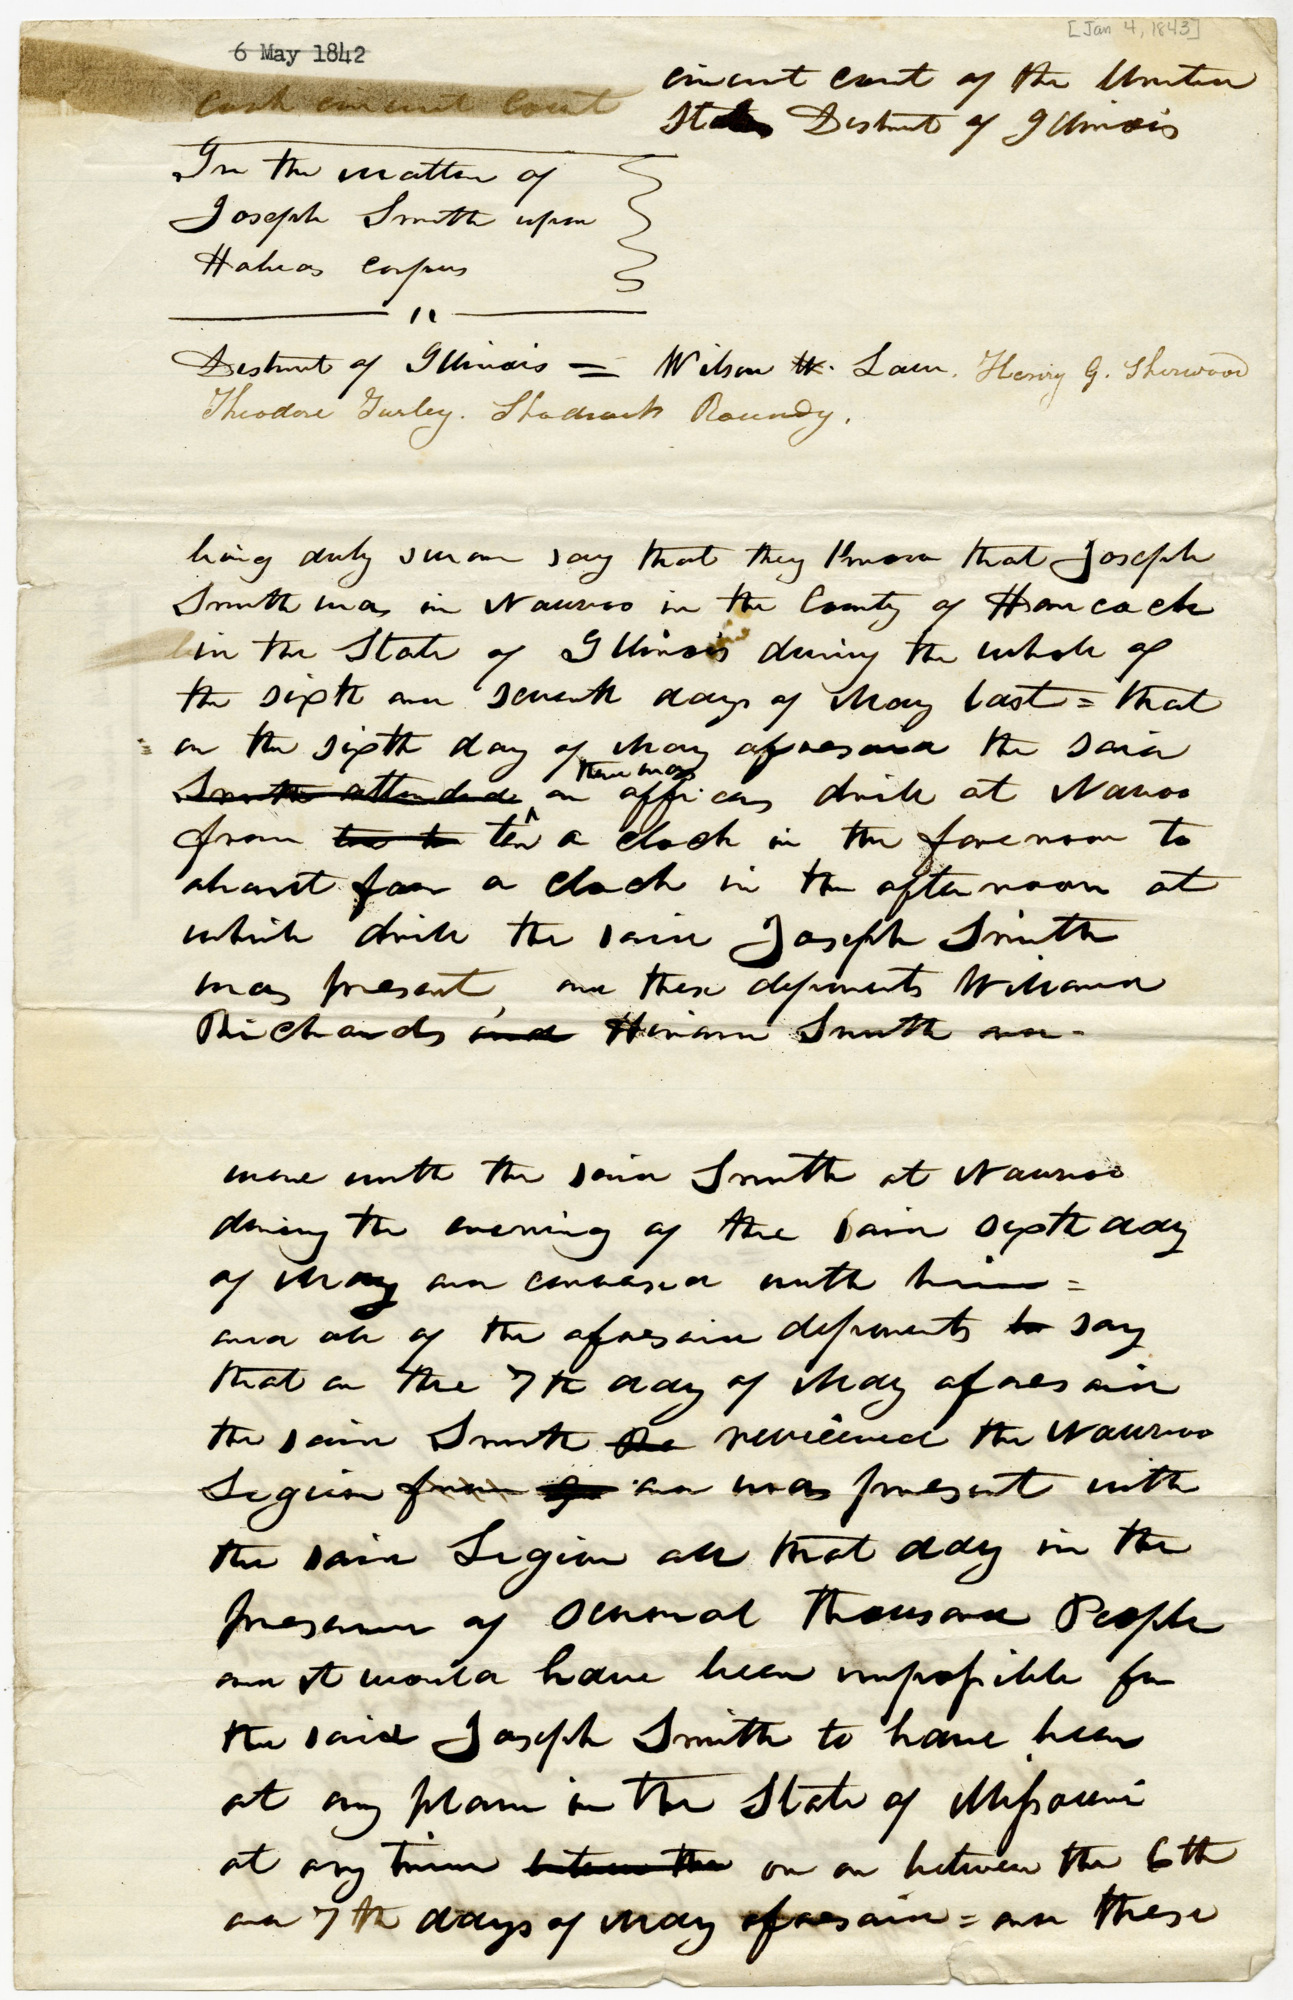 [Jan 4, 1843]
6 May 1842
circuit court of the United
States District of Illinois
circuit Court
In the matter of
Joseph Smith upon
Habeas corpus
District of Illinois = Wilson W. Law. Henry G. Sherwood
Theodore Turley. Shadrack Roundy.
being duly sworn say that they know that Joseph
Smith was in Nauvoo in the County of Hancock
in the State of Illinois during the whole of
the sixth and seventh days of May last = that
on the sixth day of May aforesaid the said
there was
Smith attended an officers drill at Nauvoo
from ten o clock in the forenoon to
about four o clock in the afternoon at
which drill the said Joseph Smith
was present, and these deponents Willard
Richards and Hiram Smith and -
were with the said Smith at Nauvoo
during the evening of the said sixth day
of May and conversed with him =
and all of the aforesaid deponents say
that on the 7th day of May aforesaid
the said Smith reviewed the Nauvoo
Legion from and was present with
the said Legion all that day in the
presence of several thousand People
and it would have been impossible for
the said Joseph Smith to have been
at any place in the State of Missouri
at any time between the on or between the 6th
and 7th days of May aforesaid = and these